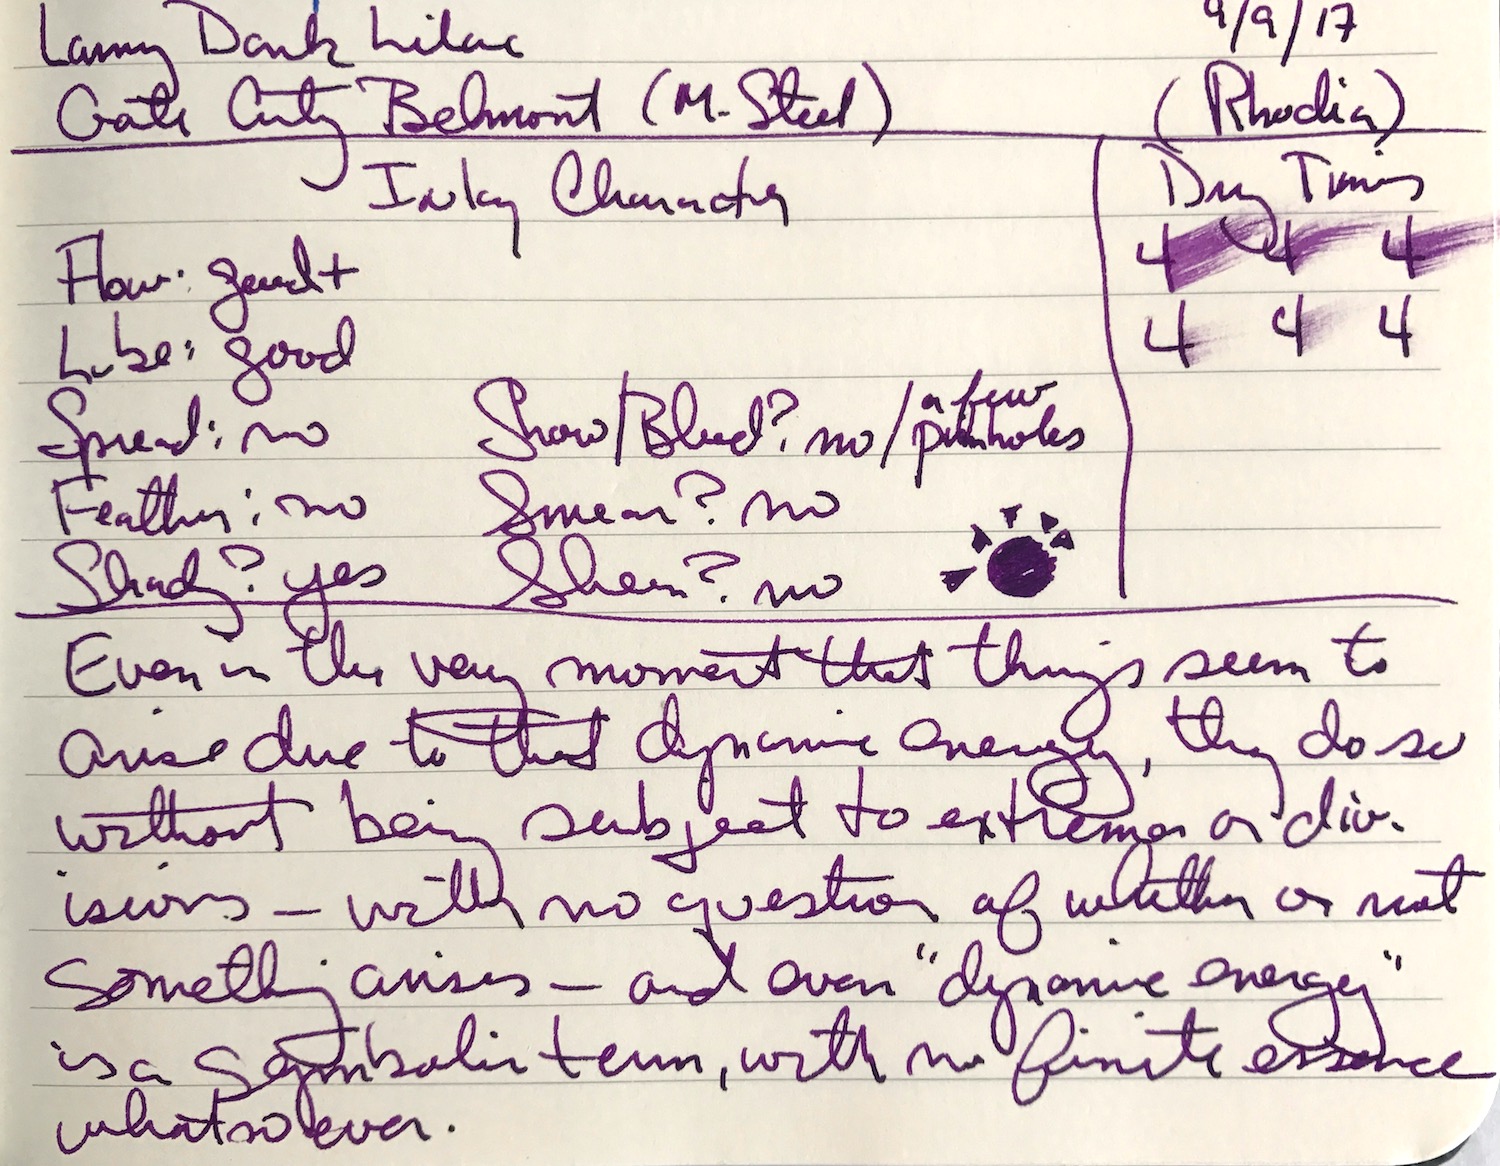 Lamy Dark Lilac 9/9/17
Gate City Belmont (M-Steel) (Rhodia)
Inky Character Dry Times
Flow: good+ 4 4 4
Lube: good 4 4 4
Spread: no Show/Bleed? no/a few pinholes
Feather: no Smear? no
Shady? yes Sheen? no
Even in the very moment that things seem to
arise due to that dynamic energy, they do so
without being subject to extremes or div-
isions – with no question of whether or not
something arises – and even "dynamic energy"
is a symbolic term, with no finite essence
whatsoever.